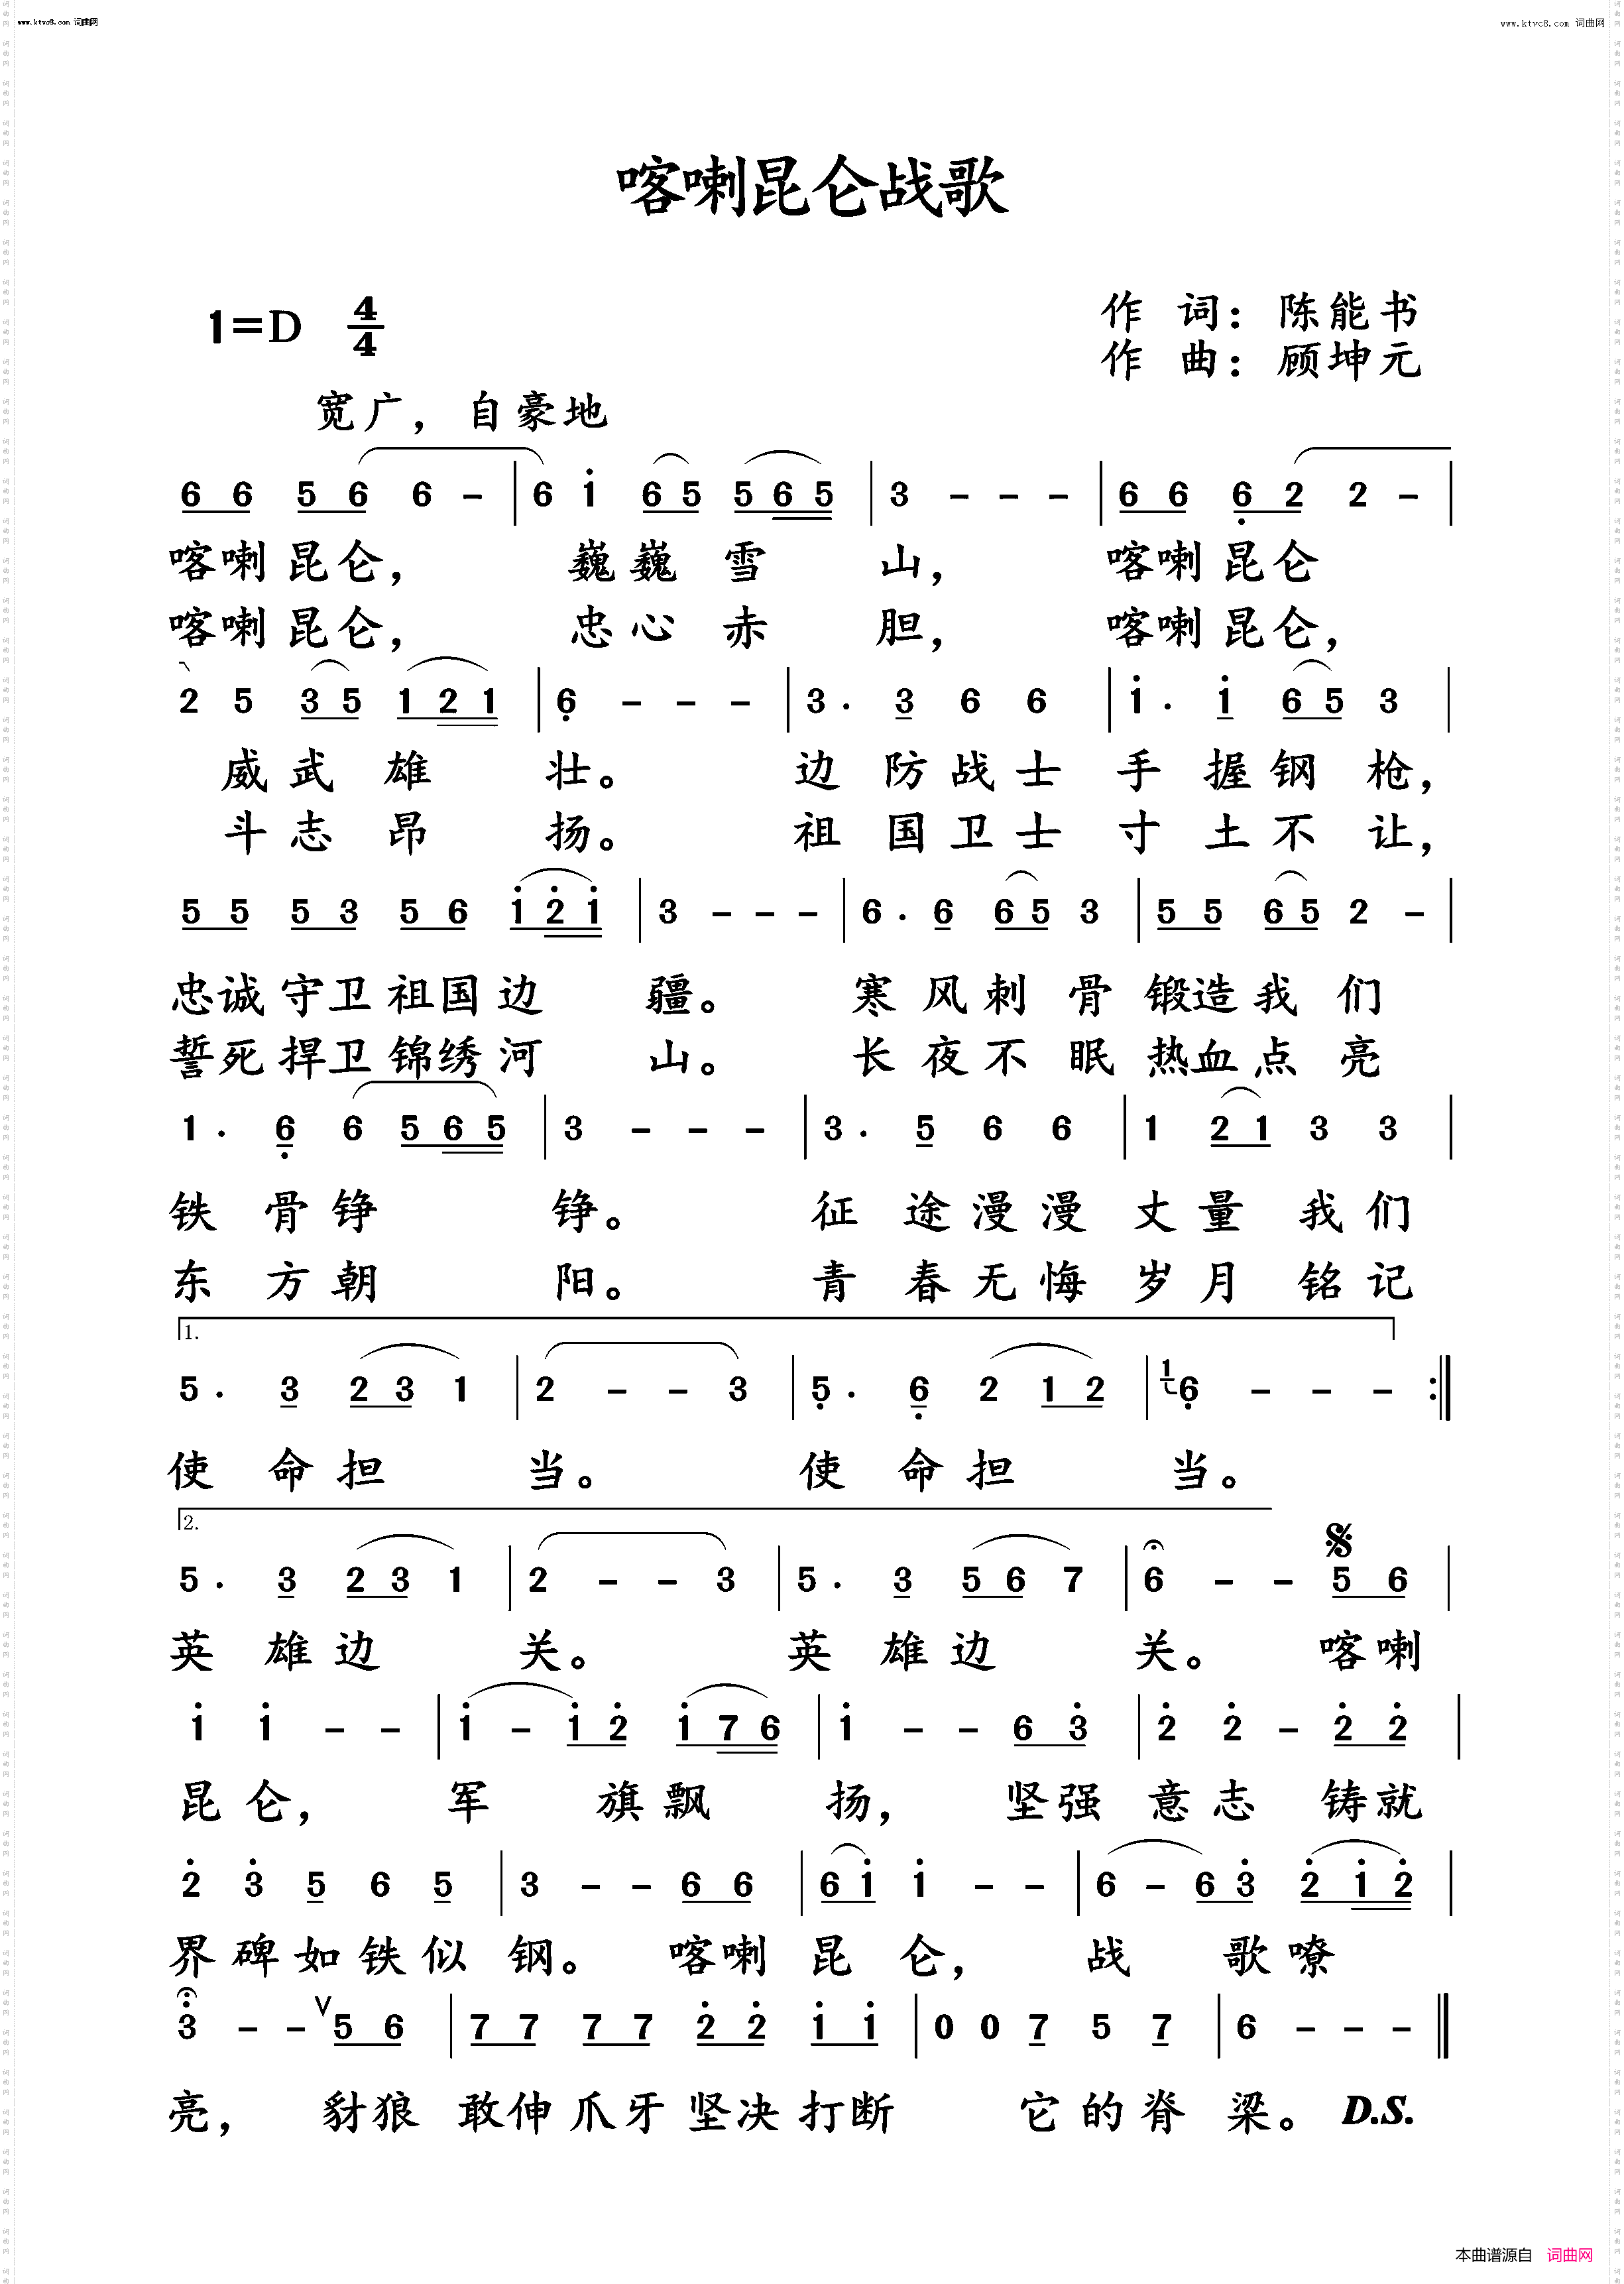 www.ktvc8.com 词曲网
www.ktvc8.com 词曲网
喀喇昆仑战歌
1=D 4/4
作 词：陈能书
作 曲：顾坤元
宽广，自豪地
6 6 5 6 6 - | 6 i 6 5 5 6 5 | 3 - - - | 6 6 6 2 2 - |
喀喇昆仑， 巍巍雪 山， 喀喇昆仑
喀喇昆仑， 忠心赤 胆， 喀喇昆仑，
2 5 3 5 1 2 1 | 6 - - - | 3 . 3 6 6 | i . i 6 5 3 |
威武雄 壮。 边 防战士 手 握钢 枪，
斗志昂 扬。 祖 国卫士 寸 土不 让，
5 5 5 3 5 6 i 2 i | 3 - - - | 6 . 6 6 5 3 | 5 5 6 5 2 - |
忠诚守卫祖国边 疆。 寒 风刺 骨 锻造我 们
誓死捍卫锦绣河 山。 长 夜不 眠 热血点 亮
1 . 6 6 5 6 5 | 3 - - - | 3 . 5 6 6 | 1 2 1 3 3 |
铁 骨铮 铮。 征 途漫漫 丈量 我们
东 方朝 阳。 青 春无悔 岁月 铭记
1.
5 . 3 2 3 1 | 2 - - 3 | 5 . 6 2 1 2 | 1 6 - - - :|
使 命担 当。 使 命担 当。
2.
5 . 3 2 3 1 | 2 - - 3 | 5 . 3 5 6 7 | 6 - - 5 6 |
英 雄边 关。 英 雄边 关。 喀喇
i i - - | i - i 2 i 7 6 | i - - 6 3 | 2 2 - 2 2 |
昆仑， 军 旗飘 扬， 坚强 意志 铸就
2 3 5 6 5 | 3 - - 6 6 | 6 i i - - | 6 - 6 3 2 i 2 |
界碑如铁似 钢。 喀喇 昆 仑， 战 歌嘹
3 - - V 5 6 | 7 7 7 7 2 2 i i | 0 0 7 5 7 | 6 - - - ‖
亮， 豺狼 敢伸爪牙坚决打断 它的脊 梁。 D.S.
本曲谱源自 词曲网